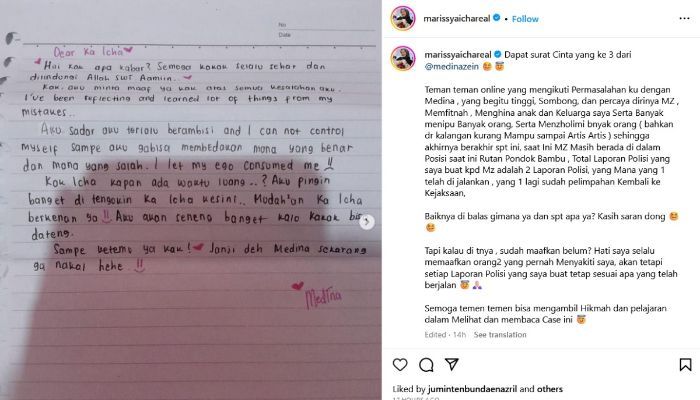 No
Date
Dear Ka Icha♥
♥ Hai kak apa kabar? Semoga kakak selalu sehat dan
dilindungi Allah swt Aamiin..♥
Kak, aku minta maaf ya kak atas semua kesalahan aku.
I've been reflecting and learned lot of things from my
mistakes..
Aku sadar aku terlalu berambisi and I can not control
myself sampe aku gabisa membedakan mana yang benar
dan mana yang salah. I let my ego consumed me !!
Kak Icha kapan ada waktu luang..? Aku pingin
banget di tengokin Ka Icha kesini.. Mudah"an Ka Icha
berkenan ya!! Aku akan seneng banget kalo kakak bis
dateng.
Sampe ketemu ya kak!♥ Janji deh Medina sekarang
ga nakal hehe !!
♥Medina
marissyaichareal
marissyaichareal Dapat surat Cinta yang ke 3 dari
@medinazein 😊 😇
Teman teman online yang mengikuti Permasalahan ku dengan
Medina , yang begitu tinggi, Sombong, dan percaya dirinya MZ ,
Memfitnah , Menghina anak dan Keluarga saya Serta Banyak
menipu Banyak orang, Serta Menzholimi bnyak orang ( bahkan
dr kalangan kurang Mampu sampai Artis Artis ) sehingga
akhirnya berakhir spt ini, saat Ini MZ Masih berada di dalam
Posisi saat ini Rutan Pondok Bambu , Total Laporan Polisi yang
saya buat kpd Mz adalah 2 Laporan Polisi, yang Mana yang 1
telah di jalankan , yang 1 lagi sudah pelimpahan Kembali ke
Kejaksaan,
Baiknya di balas gimana ya dan spt apa ya? Kasih saran dong 😊
😊
Tapi kalau di tnya , sudah maafkan belum? Hati saya selalu
memaafkan orang2 yang pernah Menyakiti saya, akan tetapi
setiap Laporan Polisi yang saya buat tetap sesuai apa yang telah
berjalan 😇 🙏🏻
Semoga temen temen bisa mengambil Hikmah dan pelajaran
dalam Melihat dan membaca Case ini 😇
Edited · 14h See translation
Liked by jumintenbundaenazril and others